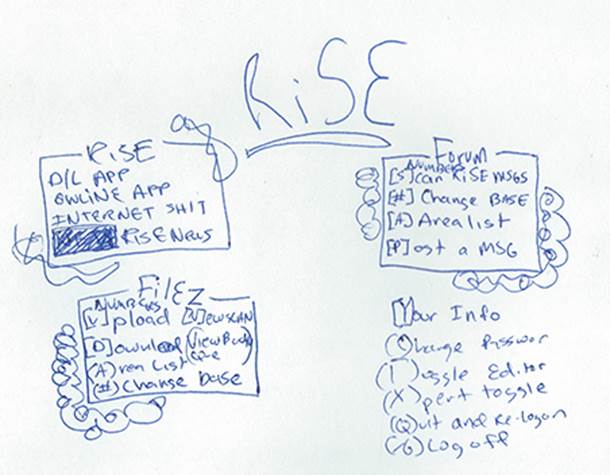 RiSE
RiSE
D/L APP
ONLINE APP
INTERNET SHIT
RiSE News
Forum
NUMBERS
[S]can RiSE MSGS
[#] Change BASE
[A] Area list
[P]ost a MSG
FilEZ
Numbers
[U]pload [N]ewscan
[D]ownload (View Batch
Que)
(A)rea List
(#) Change base
[Y]our Info
(C)hange Passwor
(T)oggle Editor
(X)pert toggle
(Q)uit and Re-logon
(G) Log off